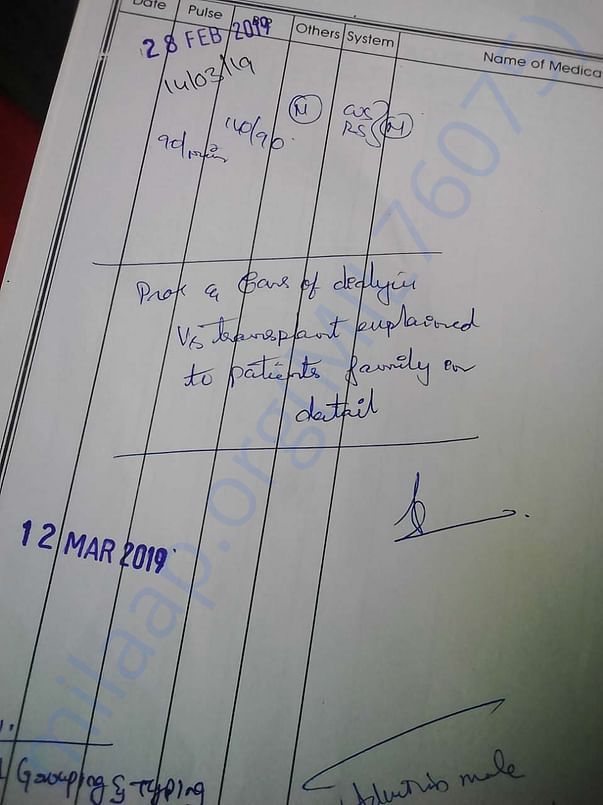 Date Pulse Others System Name of Medica
28 FEB 2019
14/03/19
140/90 N CVS
RS N
Pros & Cons of dialysis
Vs transplant explained
to patients family in
detail
12 MAR 2019
Grouping & Typing
male
milaap.org(MIL76075)